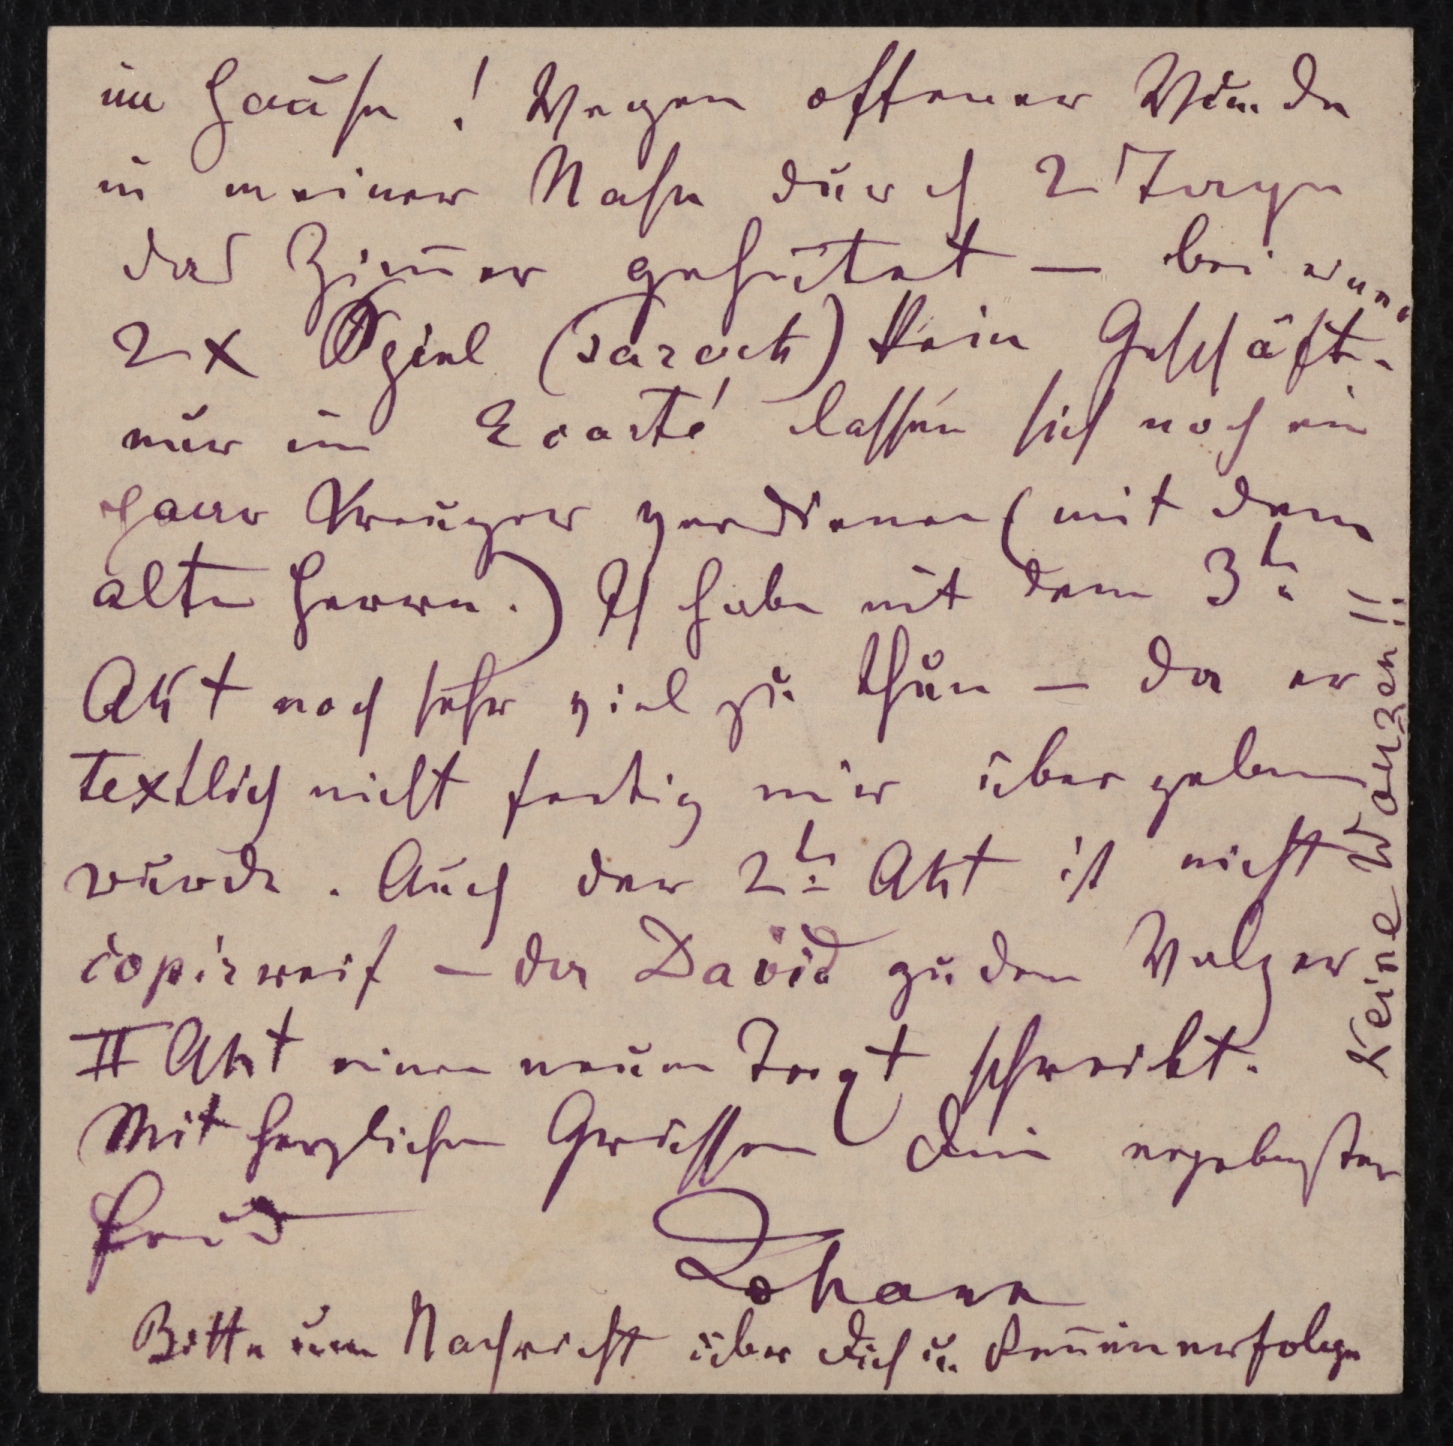 im Hause! Wegen offener Wunde
in meiner Nase durch 2 Tage
das Zimmer gehütet — bei
2 x Spiel (Tarock) kein Geschäft.
nur im Ecarté lassen sich noch ein
paar Kreuzer verdienen (mit dem
alten Herrn.) Ich habe mit dem 3ten
Akt noch sehr viel zu thun — da er
textlich nicht fertig mir übergeben
wurde. Auch der 2te Akt ist nicht
copirreif — da David zu dem Walzer
II Akt einen neuen Text schreibt.
Mit herzlichen Grüssen Dein ergebenster
Freund
Johann
Bitte um Nachricht über Dich u.
Keine Wanzen!!